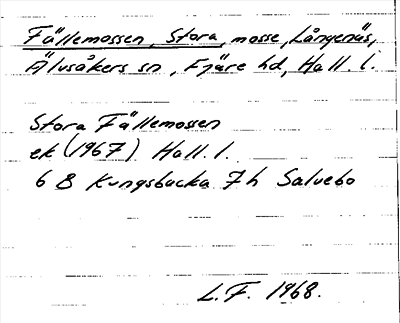 Fällemossen, Stora, mosse, Långenäs,
Älvsåkers sn, Fjäre hd, Hall. l.
Stora Fällemossen
ek (1967) Hall. l.
6 B Kungsbacka 7h Salvebo
L.F. 1968.